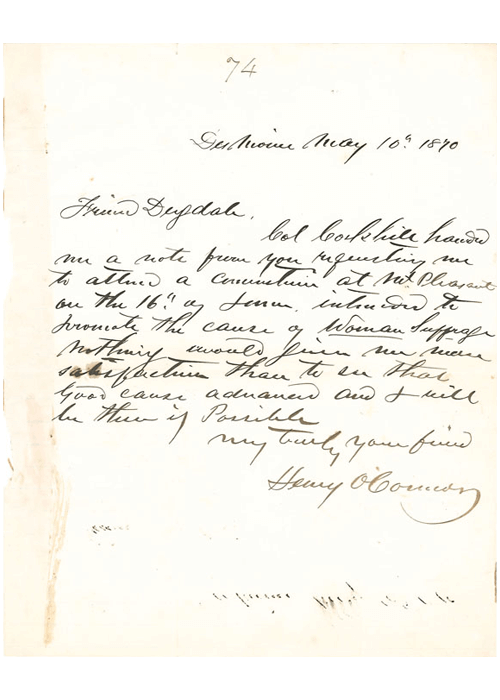 74
Des Moines May 10th 1870
Friend Dugdale,
Col Corkhill handed
me a note from you requesting me
to attend a convention at Mt Pleasant
on the 16th of June, intended to
promote the cause of Woman Suffrage
Nothing would give me more
satisfaction than to see that
Good cause advanced and I will
be there if Possible
very truly your friend
Henry O'Connor